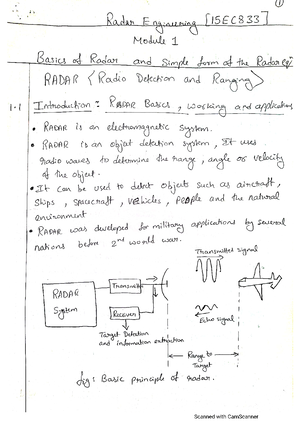 ①
Radar Engineering [15EC833]
Module 1
Basics of Radar and Simple form of the Radar Eqn
RADAR {Radio Detection and Ranging}
1.1 Introduction : RADAR Basics, working and applications
• RADAR is an electromagnetic system.
• RADAR is an objat detection system, It uses
radio waves to determine the range, angle or velocity
of the object.
• It can be used to detect objects such as aircraft,
ships, spacecraft, vehicles, people and the natural
environment
• RADAR was developed for military applications by several
nations before 2nd world war.
Transmitted signal
RADAR System
Transmitter
Receiver
Echo signal
Target Detection
and information extraction
Range to
Target
fig: Basic principle of radar.
Scanned with CamScanner